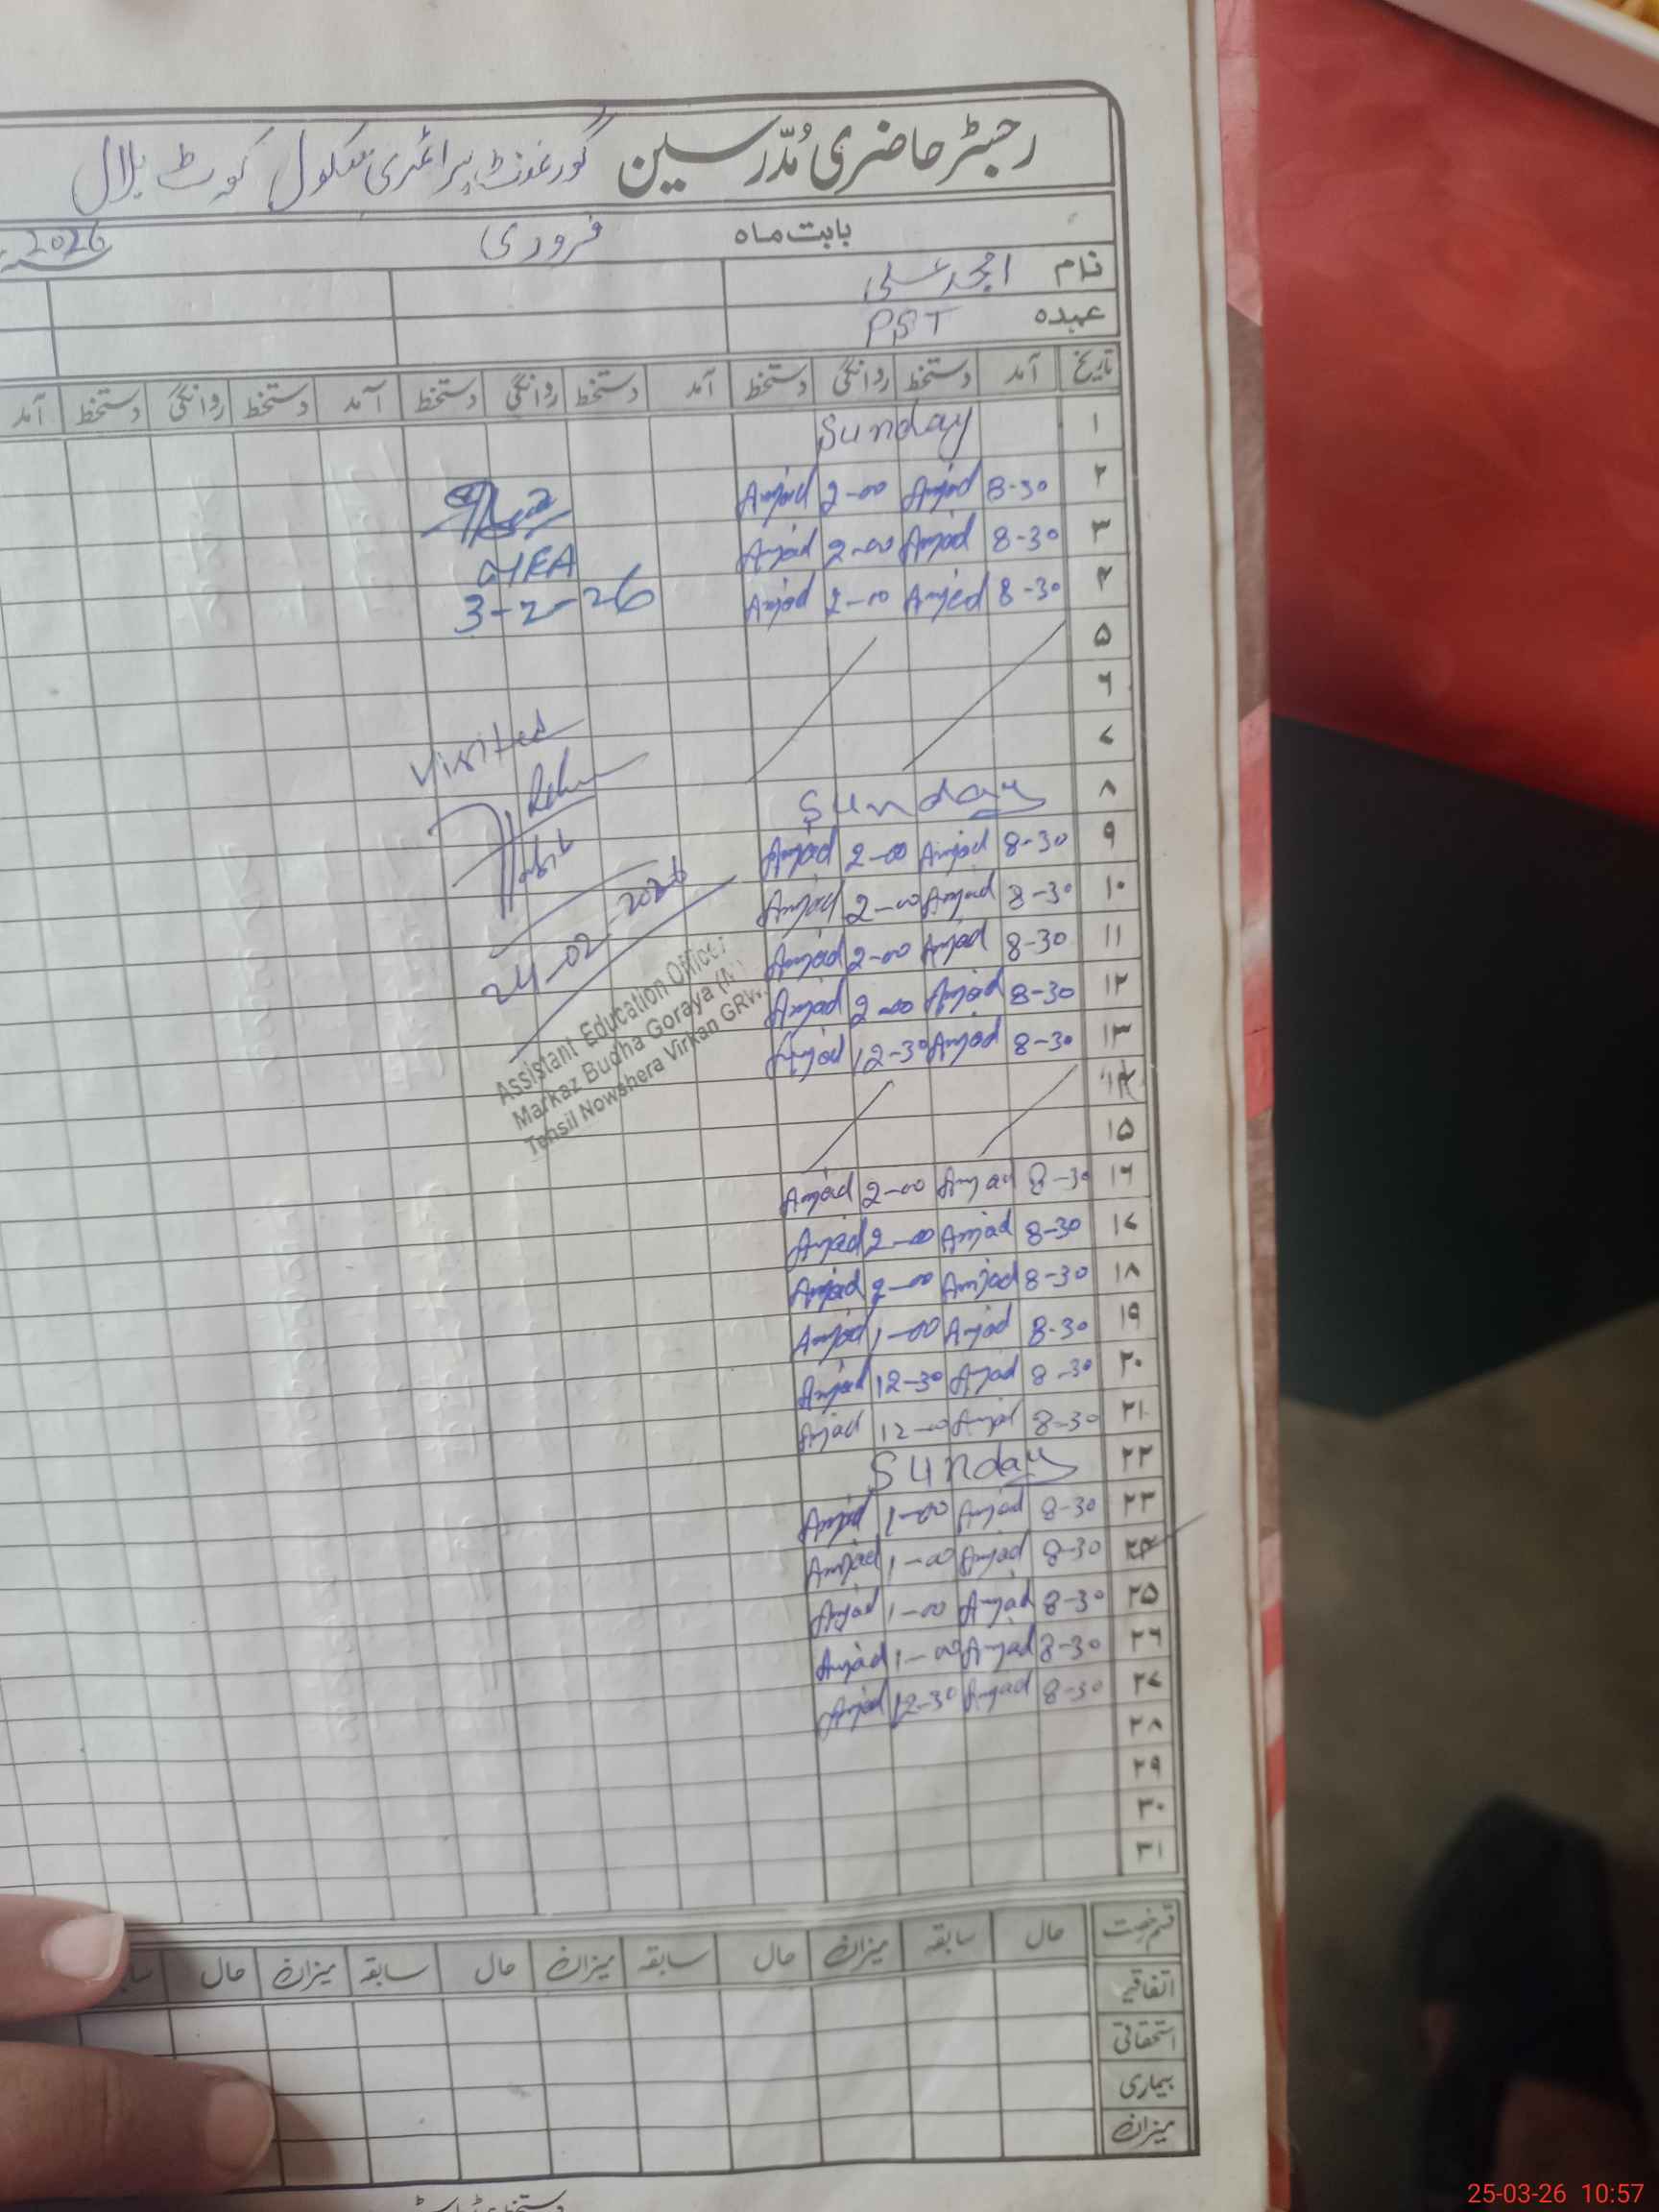 رجسٹر حاضری مُدّرسین گورنمنٹ پرائمری سکول کوٹ بلال
بابت ماہ فروری 2026
نام امجد علی
عہدہ PST
تاریخ آمد دستخط روانگی دستخط آمد دستخط روانگی دستخط آمد دستخط روانگی دستخط آمد
۱ Sunday
۲ 8-30 Amjad 2-00 Amjad
۳ 8-30 Amjad 2-00 Amjad
۴ 8-30 Amjad 2-00 Amjad
۵
۶
۷
۸ Sunday
۹ 8-30 Amjad 2-00 Amjad
۱۰ 8-30 Amjad 2-00 Amjad
۱۱ 8-30 Amjad 2-00 Amjad
۱۲ 8-30 Amjad 2-00 Amjad
۱۳ 8-30 Amjad 12-30 Amjad
۱۴
۱۵
۱۶ 8-30 Amjad 2-00 Amjad
۱۷ 8-30 Amjad 2-00 Amjad
۱۸ 8-30 Amjad 2-00 Amjad
۱۹ 8-30 Amjad 1-00 Amjad
۲۰ 8-30 Amjad 12-30 Amjad
۲۱ 8-30 Amjad 12-00 Amjad
۲۲ Sunday
۲۳ 8-30 Amjad 1-00 Amjad
۲۴ 8-30 Amjad 1-00 Amjad
۲۵ 8-30 Amjad 1-00 Amjad
۲۶ 8-30 Amjad 1-00 Amjad
۲۷ 8-30 Amjad 12-30 Amjad
۲۸
۲۹
۳۰
۳۱
MEA
3-2-26
Visited
24-02-2026
Assistant Education Officer
Markaz Budha Goraya
Tehsil Nowshera Virkan GRW
قسم رخصت حال سابقہ میزان حال سابقہ میزان حال سابقہ میزان حال
اتفاقیہ
استحقاقی
بیماری
میزان
25-03-26 10:57